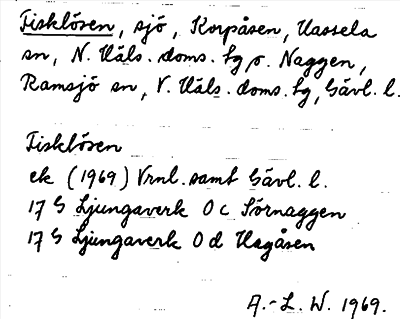 Fisklösen, sjö, Korpåsen, Hassela
sn, N. Häls. doms. tg o. Naggen,
Ramsjö sn, V. Häls. doms. tg, Gävl. l.
Fisklösen
ek (1969) Vrnl. samt Gävl. l.
17 G Ljungaverk 0 c Sörnaggen
17 G Ljungaverk 0 d Hagåsen
A.-L. W. 1969.